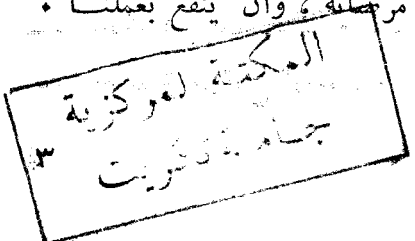 مرضاته ، وأن ينفع بعملنا .
المكتبة المركزية
جامعة تكريت
٣